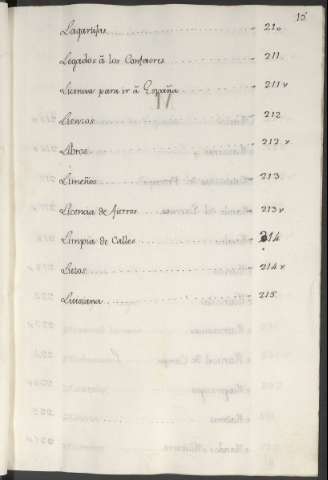 15
Lagartijas 210
Legados à los Confesores 211
Licencia para ir à España 211 v
Lienzos 212
Libros 212 v
Limeños 213
Licencia de fierros 213 v
Limpia de Calles 214
214 v
Luisiana 215